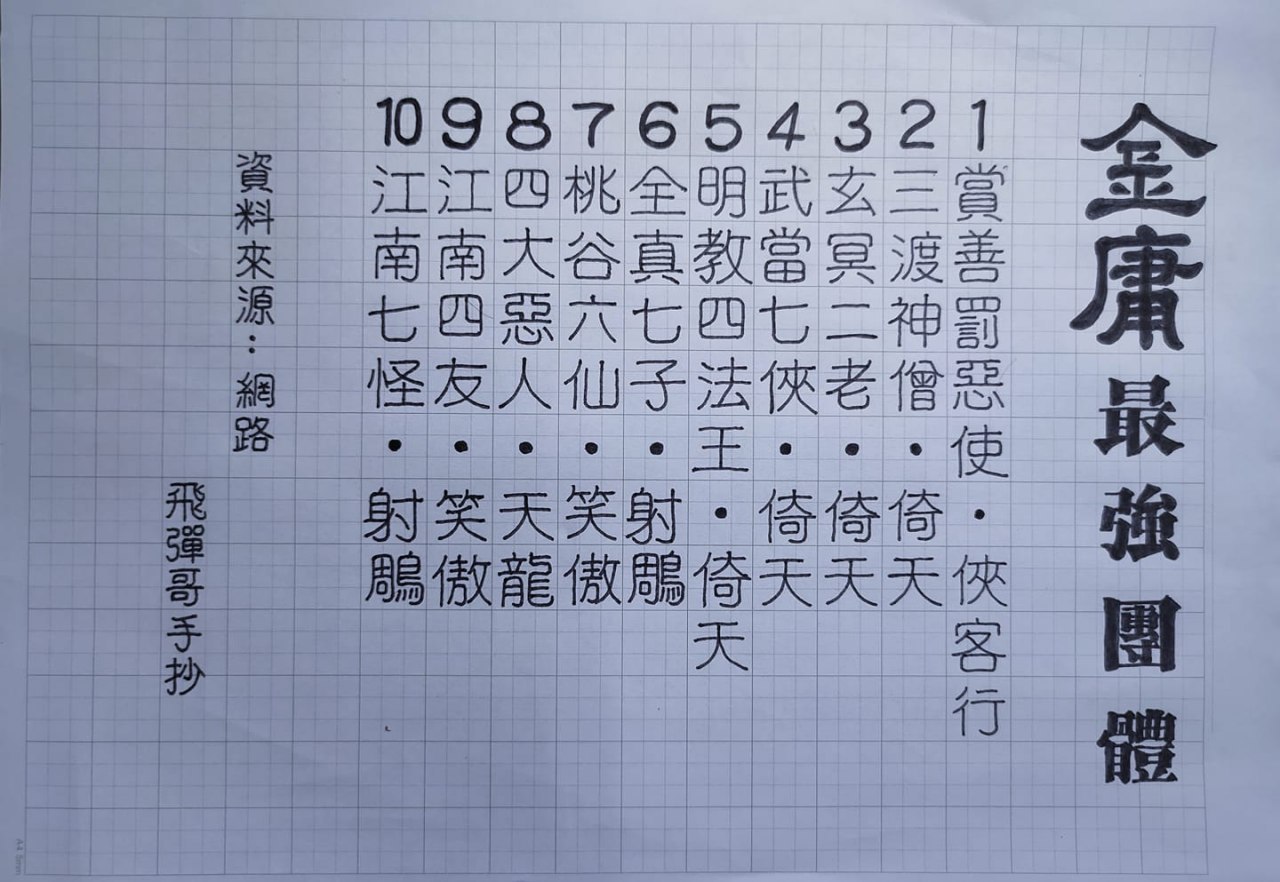 金庸最強團體
1賞善罰惡使・俠客行
2三渡神僧・倚天
3玄冥二老・倚天
4武當七俠・倚天
5明教四法王・倚天
6全真七子・射鵰
7桃谷六仙・笑傲
8四大惡人・天龍
9江南四友・笑傲
10江南七怪・射鵰
資料來源：網路
飛彈哥手抄